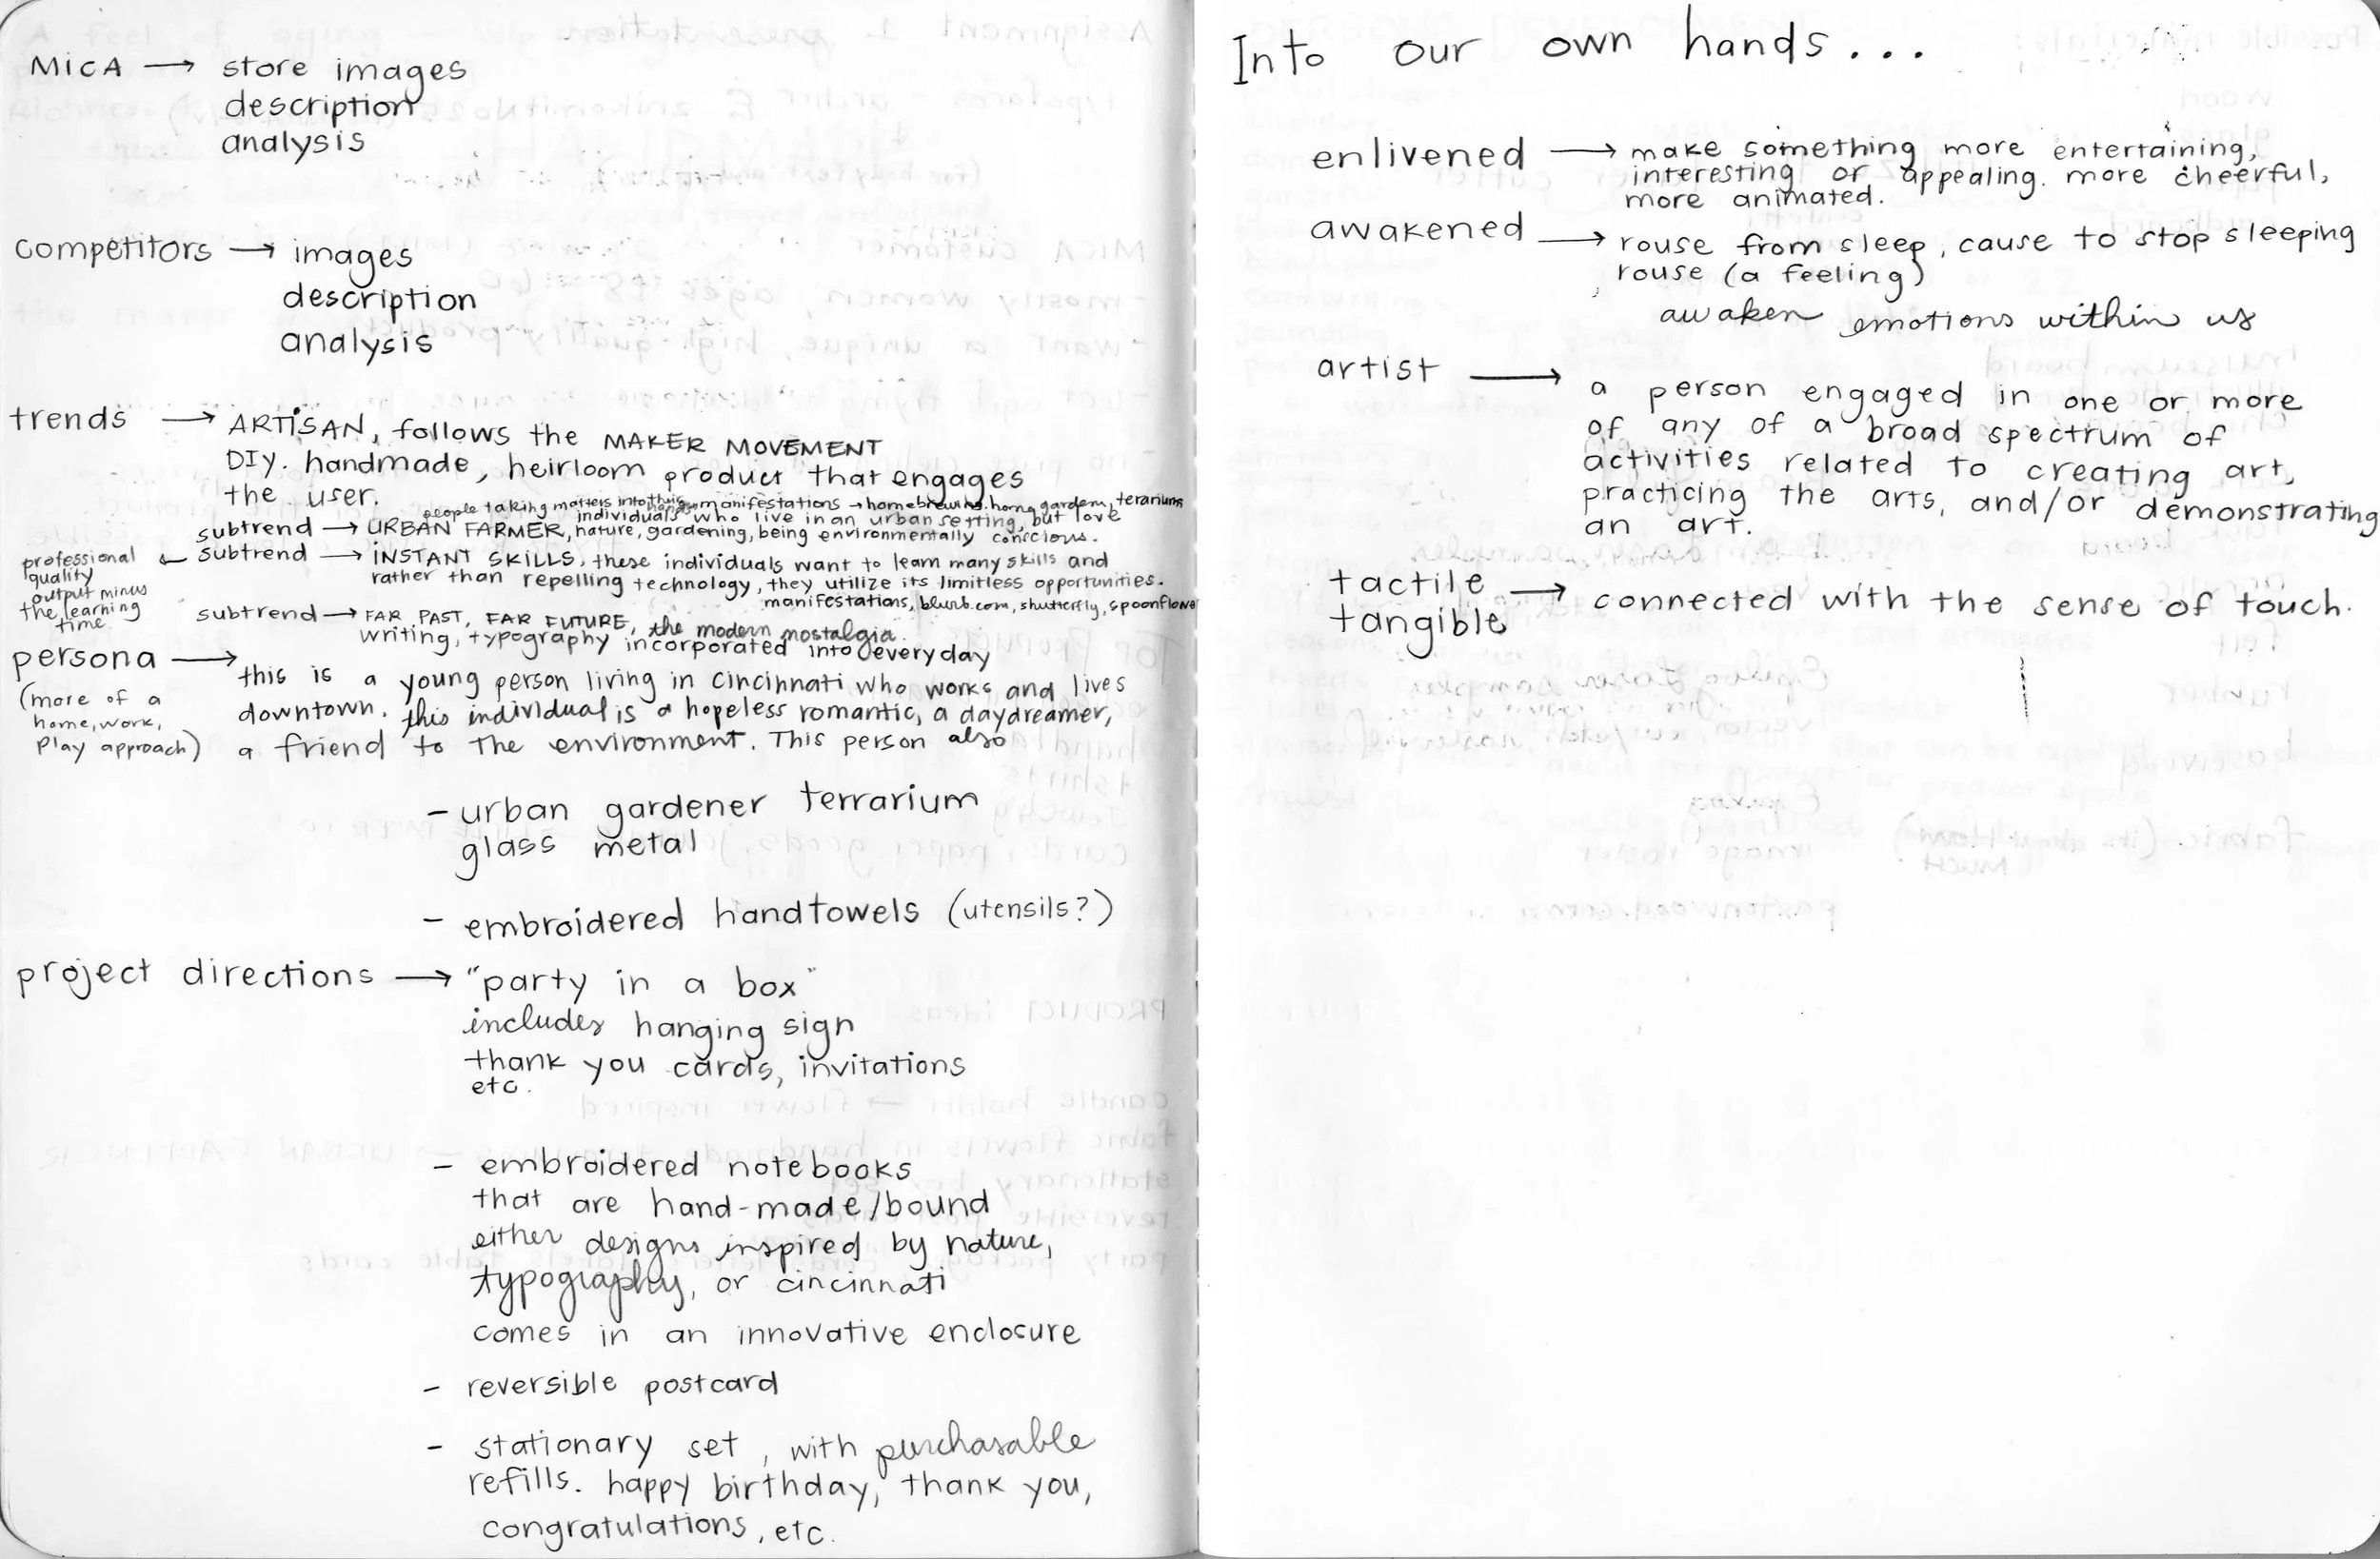 MICA → store images
description
analysis
competitors → images
description
analysis
trends → ARTISAN, follows the MAKER MOVEMENT
DIY. handmade, heirloom product that engages
the user.
people taking matters into their hands manifestations → homebrewing, home garden, terariums
subtrend → URBAN FARMER, individuals who live in an urban setting, but love
nature, gardening, being environmentally conscious.
subtrend → INSTANT SKILLS, these individuals want to learn many skills and
rather than repelling technology, they utilize its limitless opportunities.
manifestations, blurb.com, shutterfly, spoonflower
professional
quality
output minus
the learning
time
subtrend → FAR PAST, FAR FUTURE, the modern nostalgia.
writing, typography incorporated into everyday
persona →
(more of a
home, work,
play approach)
this is a young person living in cincinnati who works and lives
downtown. this individual is a hopeless romantic, a daydreamer,
a friend to the environment. This person also
- urban gardener terrarium
glass metal
- embroidered handtowels (utensils?)
project directions → "party in a box"
includes hanging sign
thank you cards, invitations
etc.
- embroidered notebooks
that are hand-made/bound
either designs inspired by nature,
typography, or cincinnati
comes in an innovative enclosure
- reversible postcard
- stationary set, with purchasable
refills. happy birthday, thank you,
congratulations, etc.
Into our own hands...
enlivened → make something more entertaining,
interesting or appealing. more cheerful,
more animated.
awakened → rouse from sleep, cause to stop sleeping
rouse (a feeling)
awaken emotions within us
artist → a person engaged in one or more
of any of a broad spectrum of
activities related to creating art,
practicing the arts, and/or demonstrating
an art.
tactile → connected with the sense of touch.
tangible